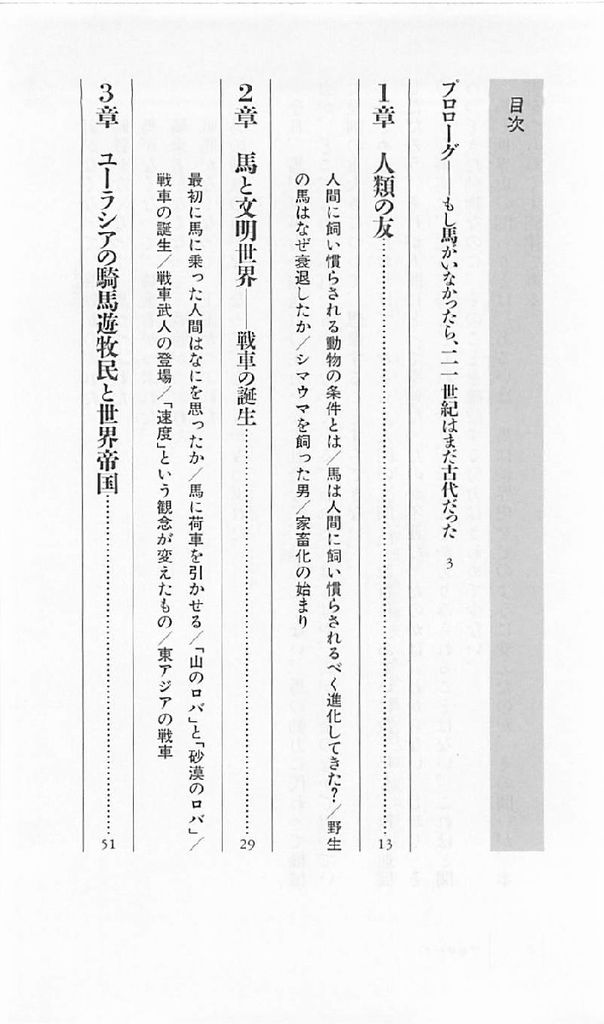 目次
プロローグ――もし馬がいなかったら、二一世紀はまだ古代だった 3
1章 人類の友 13
人間に飼い慣らされる動物の条件とは/馬は人間に飼い慣らされるべく進化してきた?/野生
の馬はなぜ衰退したか/シマウマを飼った男/家畜化の始まり
2章 馬と文明世界――戦車の誕生 29
最初に馬に乗った人間はなにを思ったか/馬に荷車を引かせる/「山のロバ」と「砂漠のロバ」/
戦車の誕生/戦車武人の登場/「速度」という観念が変えたもの/東アジアの戦車
3章 ユーラシアの騎馬遊牧民と世界帝国 51